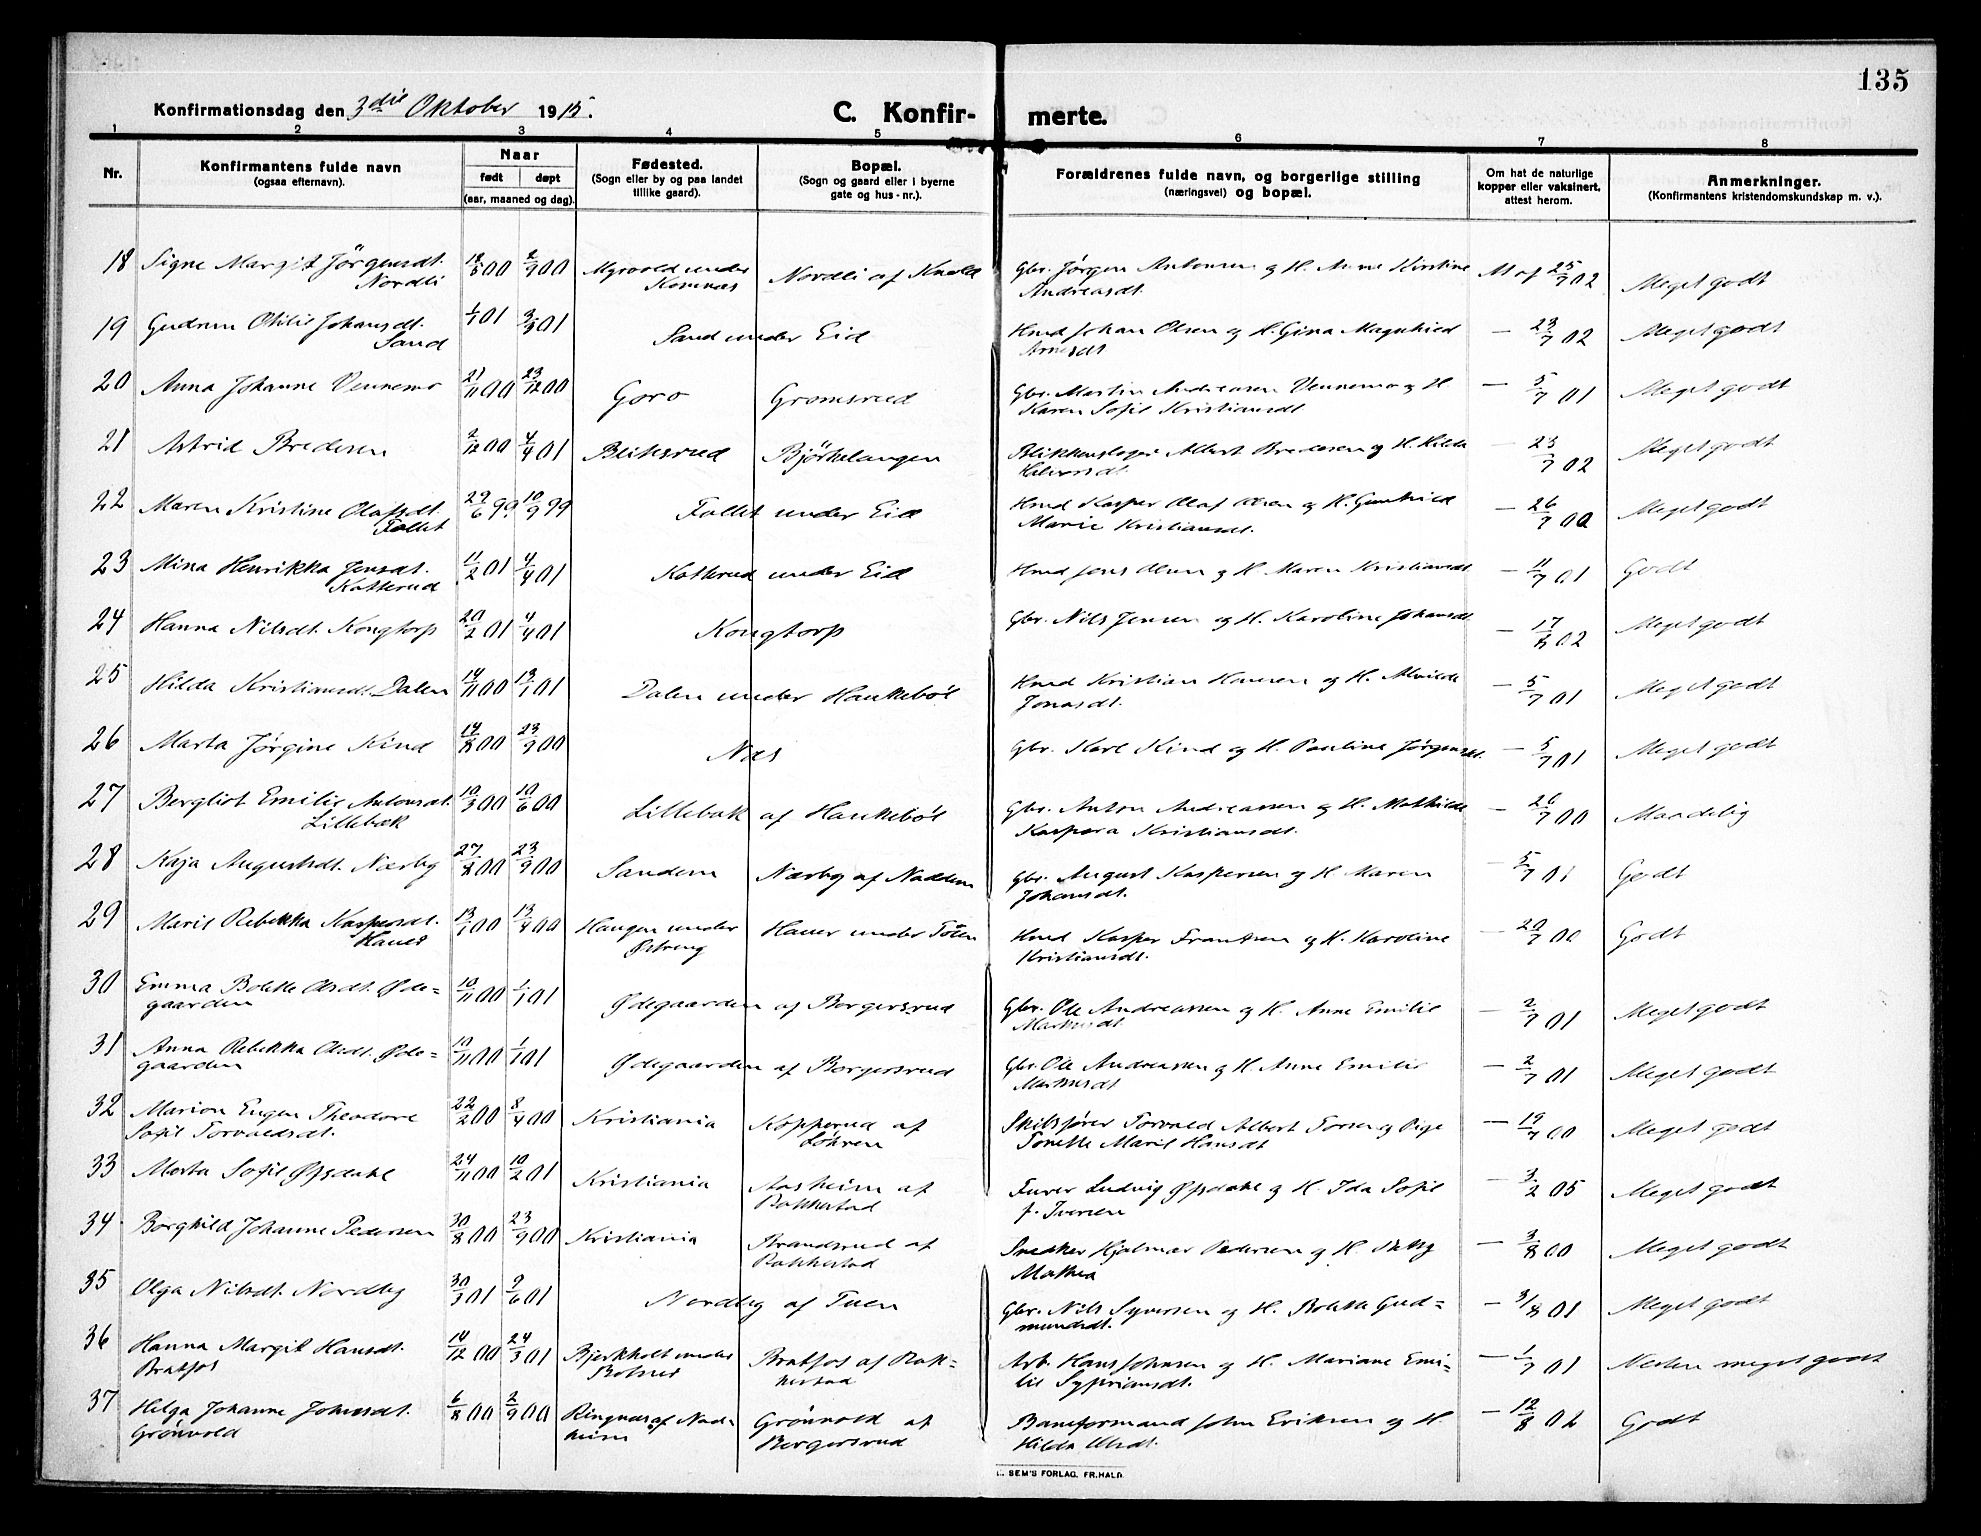 135
Konfirmationsdag den 3die Oktober 1915.
C. Konfirmerte.
1 2 3 4 5 6 7 8
Nr.
Konfirmantens fulde navn
(ogsaa efternavn).
Naar
født døpt
(aar, maaned og dag).
Fødested.
(Sogn eller by og paa landet
tillike gaard).
Bopæl.
(Sogn og gaard eller i byerne
gate og hus-nr.).
Forældrenes fulde navn, og borgerlige stilling
(næringsvei) og bopæl.
Om hat de naturlige
kopper eller vaksinert,
attest herom.
Anmerkninger.
(Konfirmantens kristendomskundskap m. v.).
18 Signe Margit Jørgensdt. 18/5 00 2/9 00 Myrvold under Nordli af Gbr. Jørgen Antonsen og H. Anne Kirstine At af 25/7 02 Meget godt
Nordli Komnæs Andreasdt.
19 Gudrun Otilie Johansdt. 1/1 01 Sand under Eid Hmd Johan Olsen og H. Gina Magnhild — 23/7 02 Meget godt
Sand Arnesdt
20 Anna Johanne Vennemo 21/11 00 23/12 00 Goro Gromsrud Gbr. Martin Andreasen Vennemo og H — 5/7 01 Meget godt
Karen Sofie Kristiansdt.
21 Astrid Bredesen 2/12 00 4/4 01 Bliksrud Bjørkelangen Blikkenslager Albert Bredesen og H. Hilda — 23/7 02 Meget godt
22 Maren Kristine Olafsdt. 29/6 99 10/9 99 Fallet under Eid Hmd Kasper Olaf Olsen og H. Gunhild — 26/7 00 Meget godt
Fallet Marie Kristiansdt.
23 Mina Henrikka Jensdt. 11/2 01 4/4 01 Katterud under Eid Hmd Jens Olsen og H. Maren Kristiansdt — 11/7 01 Godt
Katterud
24 Hanna Nilsdt. Kongtorp 20/2 01 4/4 01 Kongtorp Gbr. Nils Jensen og H. Karoline Johansdt — 17/8 02 Meget godt
25 Hilda Kristiansdt. Dalen 14/11 00 13/1 01 Dalen under Haukebøl Hmd Kristian Hansen og H. Alvilde — 5/7 01 Meget godt
Jonasdt.
26 Marta Jørgine Kind 14/8 00 23/9 00 Næs Gbr. Karl Kind og H. Pauline Jørgensdt. — 5/7 01 Meget godt
27 Bergliot Emilie Antonsdt. 10/3 00 10/6 00 Lillebæk af Haukebøl Gbr. Anton Andreassen og H. Mathilde — 26/7 00 Maadelig
Lillebæk Kaspara Kristiansdt.
28 Kaja Augustsdt. Nærby 27/8 00 23/9 00 Sandem Nærby af Naddum Gbr. August Kaspersen og H Maren — 5/7 01 Godt
Johansdt.
29 Marie Rebekka Kaspersdt. 13/1 00 13/4 00 Haugen under Haver under Toien Hmd Kasper Frantsen og H. Karoline — 20/7 00 Godt
Haver Kristiansdt.
30 Emma Bolette Olsdt. Øde= 10/11 00 1/1 01 Ødegaarden af Børgersrud Gbr. Ole Andreassen og H. Anne Emilie — 2/7 01 Meget godt
gaarden
31 Anna Rebekka Olsdt. Øde= 10/11 00 1/1 01 Ødegaarden af Børgersrud Gbr. Ole Andreassen og H Anne Emilie — 2/7 01 Meget godt
gaarden
32 Marion Eugen Theodore 22/2 00 8/4 00 Kristiania Kopperud af Skibsfører Torvald Albert Torsen og Pige — 19/7 00 Meget godt
Sofie Torvaldsdt. Løkren Tonette Marie Hansdt
33 Marta Sofie Øfsdahl 24/11 00 10/2 01 Kristiania Aasheim af Furer Ludvig Øfsdahl og H. Ida Sofie — 3/2 05 Meget godt
Rakkestad f. Iversen
34 Borghild Johanne Pedersen 30/8 00 23/9 00 Kristiania Brandsrud af Snekker Hjalmar Pedersen og H — 3/8 00 Meget godt
Rakkestad Mathea
35 Olga Nilsdt. Nordby 30/3 01 9/6 01 Nordby af Tuen Gbr. Nils Syversen og H. Bolette Gud= — 3/8 01 Meget godt
mundsdt.
36 Hanna Margit Hansdt. 14/12 00 24/3 01 Bjerkholt under Bratfos af Rak= Arb. Hans Johnsen og H. Mariane Emi= — 1/7 01 Nesten meget godt
Bratfos kestad lie Sypriansdt.
37 Helga Johanne Johnsdt. 6/8 00 2/9 00 Ringnæs af Nad= Grønvold af Baneformand John Eriksen og H — 12/8 02 Godt
Grønvold heim Børgersrud Hilda Olsdt.
SEM'S FORLAG, FR.HALD.